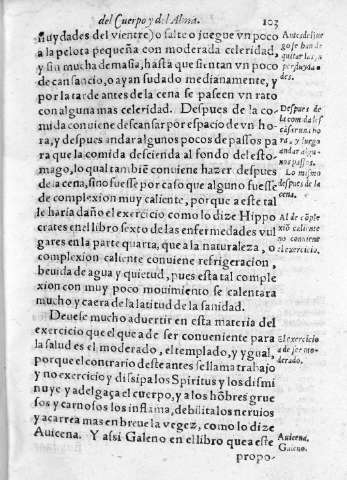 del Cuerpo y del Alma. 103
fluydades del vientre) o salte o juegue vn poco
a la pelota pequeña con moderada celeridad,
y sin mucha demasia, hasta que sientan vn poco
de cansancio, o ayan sudado medianamente, y
por la tarde antes de la cena se paseen vn rato
con alguna mas celeridad. Despues de la co-
mida conuiene descansar por espacio de vn ho-
ra, y despues andar algunos pocos de passos pa
ra que la comida descienda al fondo del esto-
mago, lo qual tambiẽ conuiene hazer despues
de la cena, sino fuesse por caso que alguno fuesse
de complexion muy caliente, porque a este tal
le haria daño el exercicio como lo dize Hippo
crates en el libro sexto de las enfermedades vul
gares en la parte quarta, que a la naturaleza, o
complexion caliente conuiene refrigeracion,
beuida de agua y quietud, pues esta tal comple
xion con muy poco mouimiento se calentara
mucho y caera de la latitud de la sanidad.
Deuese mucho aduertir en esta materia del
exercicio que el que a de ser conueniente para
la salud es el moderado, el templado, y ygual,
porque el contrario deste antes se llama trabajo
y no exercicio y dissipa los Spiritus y los dismi
nuye y adelgaça el cuerpo, y a los hõbres grue
sos y carnosos los inflama, debilita los neruios
y acarrea mas en breue la vegez, como lo dize
Auicena. Y assi Galeno en el libro que a este
propo-
Despues de
la comida des
cãsar una ho
ra, y luego
andar algu-
nos passos.
Lo mismo
despues de la
cena.
Al de cõple
xiõ caliente
no conuiene
el exercicio.
El exercicio
a de ser mo-
derado.
Auicena.
Galeno.